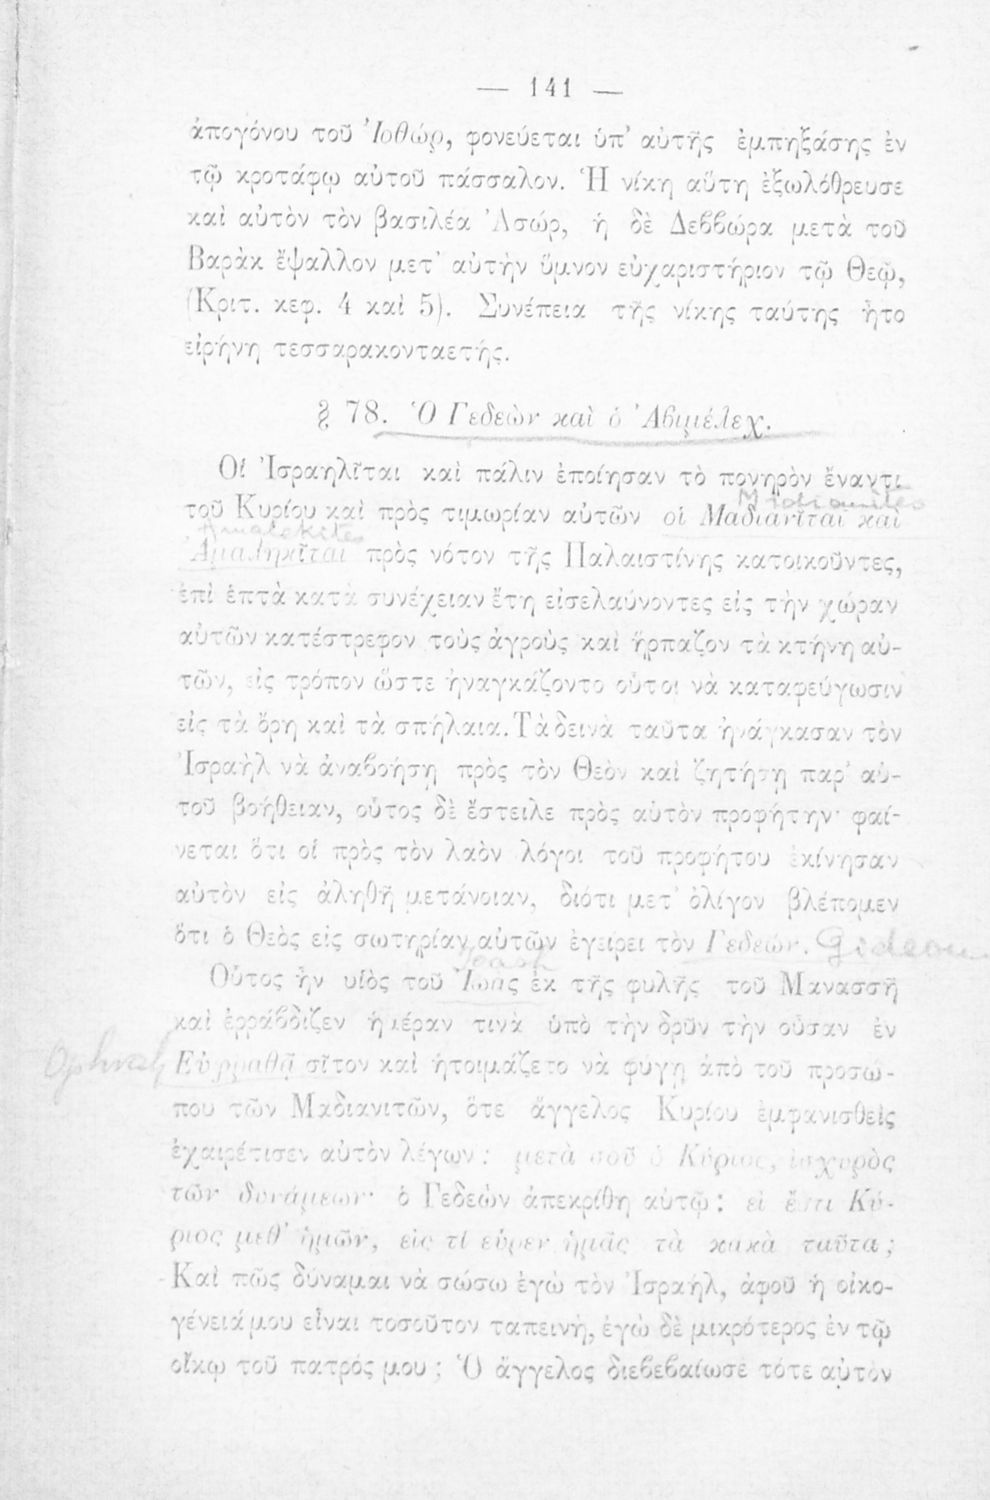 — 141 —
ἀπογόνου τοῦ Ἰοθώρ, φονεύεται ὑπ' αὐτῆς ἐμπηξάσης ἐν
τῷ κροτάφῳ αὐτοῦ πάσσαλον. Ἡ νίκη αὕτη ἐξωλόθρευσε
καὶ αὐτὸν τὸν βασιλέα Ἀσώρ, ἡ δὲ Δεββώρα μετὰ τοῦ
Βαρὰκ ἔψαλλον μετ' αὐτὴν ὕμνον εὐχαριστήριον τῷ Θεῷ,
(Κριτ. κεφ. 4 καὶ 5). Συνέπεια τῆς νίκης ταύτης ἦτο
εἰρήνη τεσσαρακονταετής.
§ 78. Ὁ Γεδεὼν καὶ ὁ Ἀβιμέλεχ.
Οἱ Ἰσραηλῖται καὶ πάλιν ἐποίησαν τὸ πονηρὸν ἔναντι
Midianites
τοῦ Κυρίου καὶ πρὸς τιμωρίαν αὐτῶν οἱ Μαδιανῖται καὶ
Amalekites
Ἀμαληκῖται πρὸς νότον τῆς Παλαιστίνης κατοικοῦντες,
ἐπὶ ἑπτὰ κατὰ συνέχειαν ἔτη εἰσελαύνοντες εἰς τὴν χώραν
αὐτῶν κατέστρεφον τοὺς ἀγροὺς καὶ ἥρπαζον τὰ κτήνη αὐ-
τῶν, εἰς τρόπον ὥστε ἠναγκάζοντο οὗτοι νὰ καταφεύγωσιν
εἰς τὰ ὄρη καὶ τὰ σπήλαια. Τὰ δεινὰ ταῦτα ἠνάγκασαν τὸν
Ἰσραὴλ νὰ ἀναβοήσῃ πρὸς τὸν Θεὸν καὶ ζητήσῃ παρ' αὐ-
τοῦ βοήθειαν, οὗτος δὲ ἔστειλε πρὸς αὐτὸν προφήτην· φαί-
νεται ὅτι οἱ πρὸς τὸν λαὸν λόγοι τοῦ προφήτου ἐκίνησαν
αὐτὸν εἰς ἀληθῆ μετάνοιαν, διότι μετ' ὀλίγον βλέπομεν
ὅτι ὁ Θεὸς εἰς σωτηρίαν αὐτῶν ἐγείρει τὸν Γεδεών. Gideon
Joash
Οὗτος ἦν υἱὸς τοῦ Ἰωὰς ἐκ τῆς φυλῆς τοῦ Μανασσῆ
καὶ ἐρράβδιζεν ἡμέραν τινὰ ὑπὸ τὴν δρῦν τὴν οὖσαν ἐν
Ophrah Εὐφραθᾷ σῖτον καὶ ἡτοιμάζετο νὰ φύγῃ ἀπὸ τοῦ προσώ-
που τῶν Μαδιανιτῶν, ὅτε ἄγγελος Κυρίου ἐμφανισθεὶς
ἐχαιρέτισεν αὐτὸν λέγων: μετὰ σοῦ ὁ Κύριος, ἰσχυρὸς
τῶν δυνάμεων· ὁ Γεδεὼν ἀπεκρίθη αὐτῷ: εἰ ἔστι Κύ-
ριος μεθ' ἡμῶν, εἰς τί εὗρεν ἡμᾶς τὰ κακὰ ταῦτα;
Καὶ πῶς δύναμαι νὰ σώσω ἐγὼ τὸν Ἰσραήλ, ἀφοῦ ἡ οἰκο-
γένειά μου εἶναι τοσοῦτον ταπεινή, ἐγὼ δὲ μικρότερος ἐν τῷ
οἴκῳ τοῦ πατρός μου; Ὁ ἄγγελος διεβεβαίωσε τότε αὐτὸν